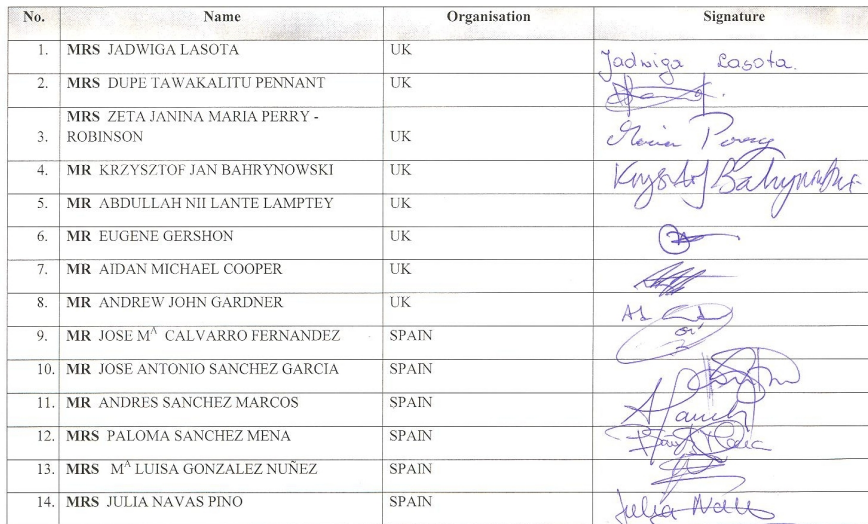 No. Name Organisation Signature
1. MRS JADWIGA LASOTA UK Jadwiga Lasota.
2. MRS DUPE TAWAKALITU PENNANT UK
MRS ZETA JANINA MARIA PERRY -
3. ROBINSON UK Maria Perry
4. MR KRZYSZTOF JAN BAHRYNOWSKI UK
5. MR ABDULLAH NII LANTE LAMPTEY UK
6. MR EUGENE GERSHON UK
7. MR AIDAN MICHAEL COOPER UK
8. MR ANDREW JOHN GARDNER UK
9. MR JOSE Mᴬ CALVARRO FERNANDEZ SPAIN
10. MR JOSE ANTONIO SANCHEZ GARCIA SPAIN
11. MR ANDRES SANCHEZ MARCOS SPAIN
12. MRS PALOMA SANCHEZ MENA SPAIN
13. MRS Mᴬ LUISA GONZALEZ NUÑEZ SPAIN
14. MRS JULIA NAVAS PINO SPAIN Julia